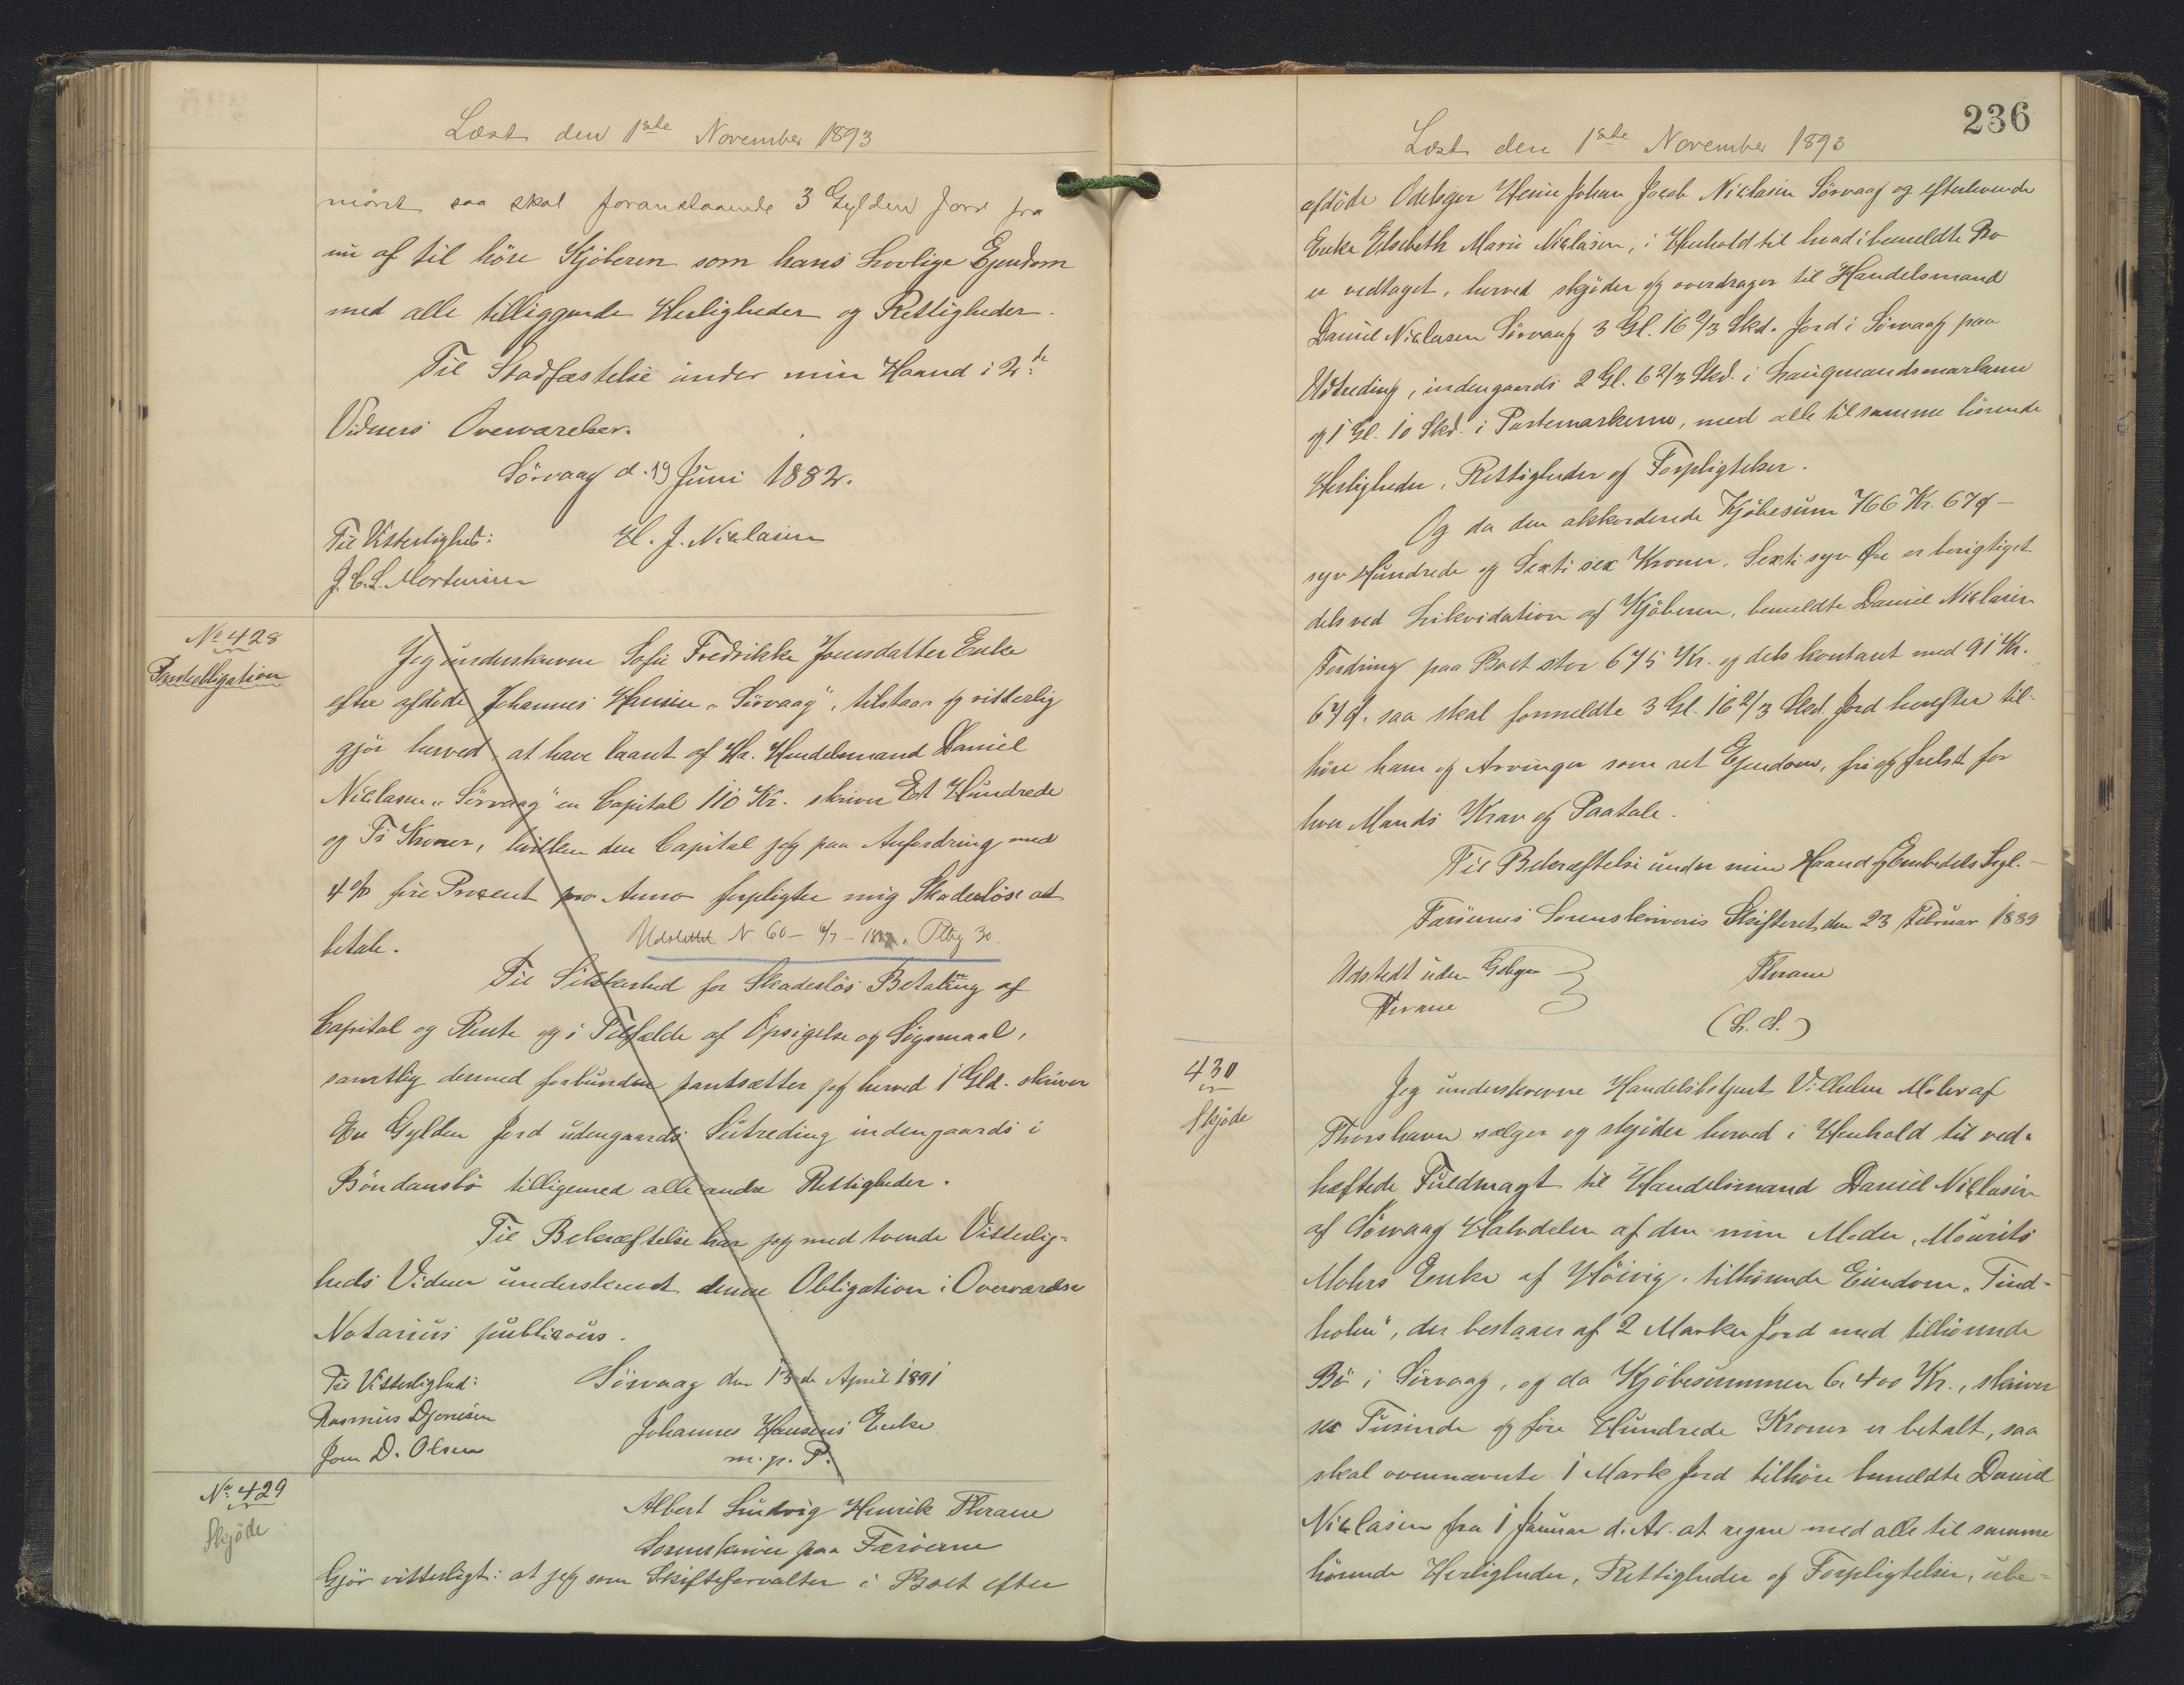 Læst den 1ste November 1893
nævnt saa skal foranstaaende 3 Gylden Jord fra
nu af til höre Kjöberen som hans Lovlige Ejendom
med alle tilliggende Herligheder og Rettigheder.
Til Stadfæstelse under min Haand i 2de
Vidners Overværelser.
Sörvaag d. 19 Juni 1882.
Til Vitterlighed: H. J. Niclasen
J. C. S. Mortensen
No 428
Pantobligation
Jeg underskrevne Sofie Fredrikke Joensdatter Enke
efter afdöde Johannes Hansen "Sörvaag", tilstaar og vitterlig
gjör herved, at have laant af Hr. Handelsmand Daniel
Niclasen "Sörvaag" en Capital 110 Kr. skriver Et Hundrede
og Ti Kroner, hvilken den Capital jeg paa Anfordring med
4 % fire Procent pro Anno forpligter mig Skadeslöst at
betale. Udslettet N 60 Pltbg 30.
Til Sikkerhed for Skadeslös Betaling af
Capital og Rente og i Tilfælde af Opsigelse og Sögsmaal,
samtlig dermed forbunden pantsætter jeg herved 1 Gld. skriver
En Gylden Jord udengaards Sutreding indengaards i
Böndansbö tilligemed alle andre Rettigheder.
Til Bekræftelse har jeg med tvende Vitterlig=
heds Vidner underskrevet denne Obligation i Overværelse
Notarius publicous.
Til Vitterlighed: Sörvaag den 13de April 1891
Rasmus Djonesen Johannes Hansens Enke
Joen D. Olsen m. p. P.
No 429
Skjöde
Albert Ludvig Henrik Florane
Sorenskriver paa Færöerne
Gjör vitterligt: at jeg som Skifteforvalter i Boet efter
236
Læst den 1ste November 1893
afdöde Odelsger Heine Johan Jacob Niclasen Sörvaag og efterlevende
Enke Elsebeth Marie Niclasen, i Henhold til hvad i bemeldte Bo
er vedtaget, herved skjöder og overdrager til Handelsmand
Daniel Niclasen Sörvaag 3 Gl. 16 2/3 Skd. Jord i Sörvaag paa
Udtreding, indengaards 2 Gl. 6 2/3 Skd. i Laugmandsmarkene
og 1 Gl. 10 Skd. i Partemarkerne, med alle til samme hörende
Herligheder, Rettigheder og Forpligtelser.
Og da den akkorderede Kjöbesum 766 Kr. 67 ø —
syv Hundrede og Sexti sex Kroner, Sexti syv Øre er berigtiget
dels ved Likvidation af Kjöberen, bemeldte Daniel Niclasen
Fordring paa Boet stor 675 Kr. og dels kontant med 91 Kr.
67 ø. saa skal formeldte 3 Gl. 16 2/3 Skd. Jord herefter til-
höre ham og Arvinger som ret Ejendom, fri og frelst for
hver Mands Krav og Paatale.
Til Bekræftelse under min Haand og Embedets Segl. —
Færöernes Sorenskriveris Skifteret, den 23 Februar 1889
Udstedt uden Gebyr Florane
Florane (L. S.)
430
Skjöde
Jeg underskrevne Handelsbetjent Vilhelm Mohr af
Thorshavn sælger og skjöder herved i Henhold til ved=
hæftede Fuldmagt til Handelsmand Daniel Niclasen
af Sörvaag Halvdelen af den min Moder, Mourits
Mohrs Enke af Höivig, tilhörende Eiendom "Tind=
holm", der bestaaer af 2 Marker Jord med tilhörende
Bö i Sörvaag, og da Kjöbesummen 6,400 Kr., skriver
sex Tusinde og fire Hundrede Kroner er betalt, saa
skal ovennævnte 1 Mark Jord tilhöre bemeldte Daniel
Niclasen fra 1 Januar d. Ar. at regne med alle til samme
hörende Herligheder, Rettigheder og Forpligtelser, ube=